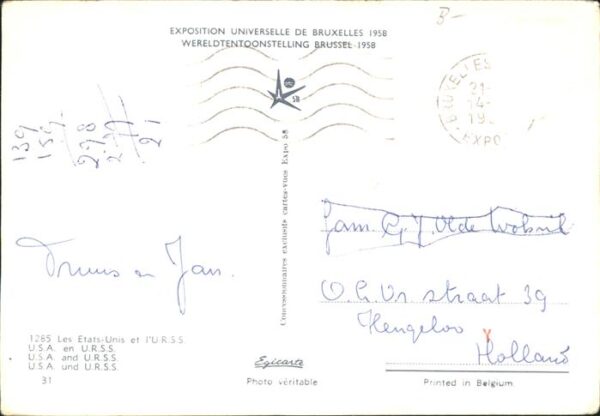 EXPOSITION UNIVERSELLE DE BRUXELLES 1958
WERELDTENTOONSTELLING BRUSSEL 1958
58
BRUXELLES
21-
14-
19
EXPO
139
159
278
21
Concessionnaires exclusifs cartes-vues Expo 58
Truus en Jan.
Fam. G. J. Olde
straat 39
Hengeloo
Holland
1285 Les Etats-Unis et l'U.R.S.S.
U.S.A. en U.R.S.S.
U.S.A. and U.R.S.S.
U.S.A. und U.R.S.S.
31
Egicarte
Photo véritable
Printed in Belgium